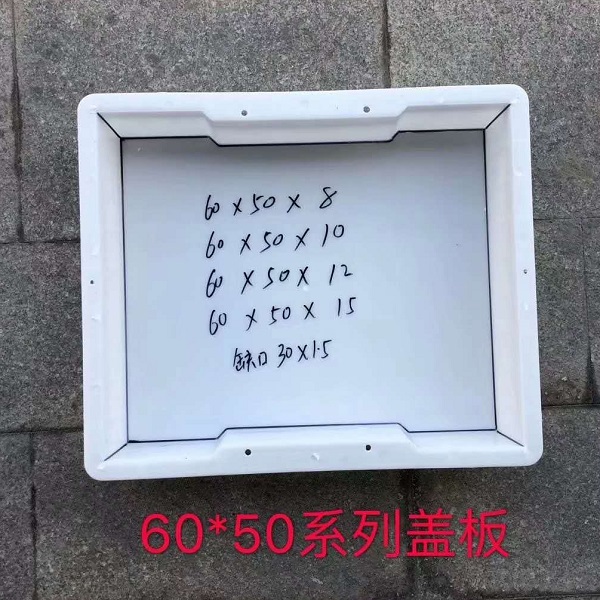 60 × 50 × 8
60 × 50 × 10
60 × 50 × 12
60 × 50 × 15
缺口 30×1.5
60*50系列盖板